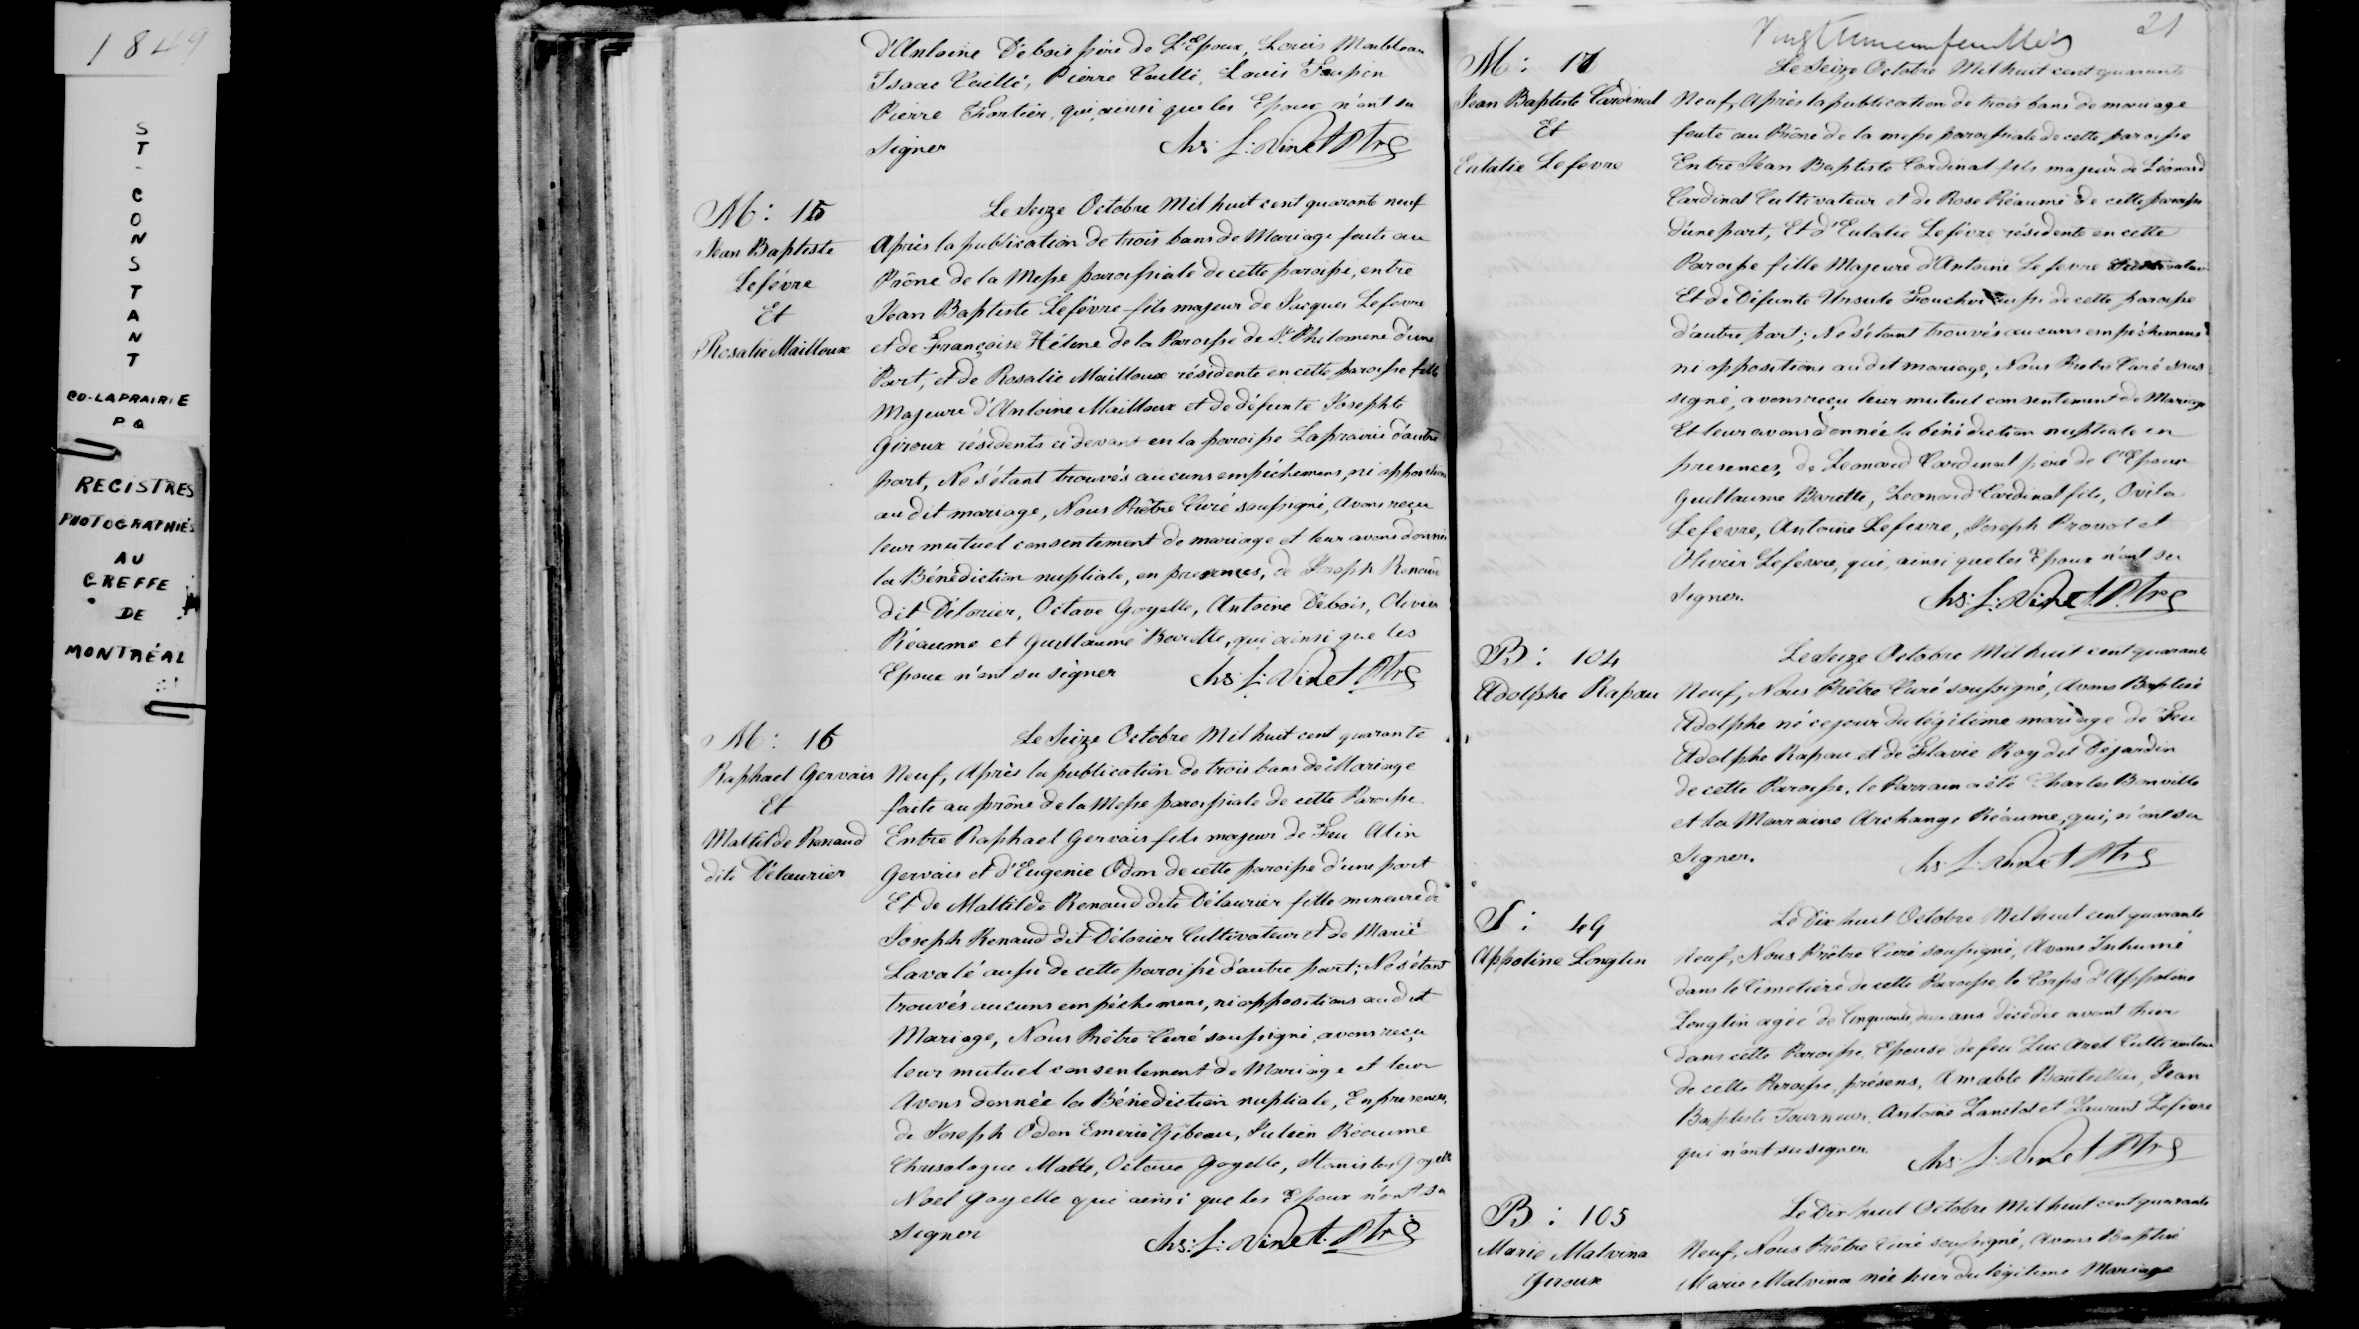 1849
ST-CONSTANT
CO-LAPRAIRIE
PQ
REGISTRES
PHOTOGRAPHIÉS
AU
GREFFE
DE
MONTRÉAL
d'Antoine Débois père de l'Epoux, Louis
Isaac Caillé, Pierre Caillé, Louis
Pierre qui, ainsi que les Epoux n'ont su
signer Chs: L: Vinet Ptre
M: 15
Jean Baptiste
Lefévre
Et
Rosalie Mailloux
Le Seize Octobre Mil huit cent quarante neuf
Après la publication de trois bans de Mariage faite au
Prône de la Messe paroissiale de cette paroisse, entre
Jean Baptiste Lefévre fils majeur de Jacques Lefevre
et de Françoise Hélène de la Paroisse de St Philomene d'une
Part, et de Rosalie Mailloux résidente en cette paroisse fille
Majeure d'Antoine Mailloux et de défunte Josephte
Giroux résidents ci devant en la paroisse Laprairie d'autre
part, Ne s'étant trouvés aucuns empêchemens, ni oppositions
au dit mariage, Nous Prêtre Curé soussigné, Avons reçu
leur mutuel consentement de mariage et leur avons donnée
la Bénédiction nuptiale, en presences, de Joseph Renaud
dit Délorier, Octave Goyette, Antoine Débois, Olivier
Réaume et Guillaume Barette, qui ainsi que les
Epoux n'ont su signer Chs: L: Vinet Ptre
M: 16
Raphael Gervais
Et
Mathilde Renaud
dite Délaurier
Le Seize Octobre Mil huit cent quarante
Neuf, Après la publication de trois bans de Mariage
faite au prône de la Messe paroissiale de cette Paroisse
Entre Raphael Gervais fils majeur de Feu
Gervais et d'Eugenie Odon de cette paroisse d'une part
Et de Mathilde Renaud dite Délaurier fille mineure de
Joseph Renaud dit Délorier Cultivateur et de Marie
Lavalé aussi de cette paroisse d'autre part; Ne s'étant
trouvés aucuns empêchemens, ni oppositions au dit
Mariage, Nous Prêtre Curé soussigné, avons reçu
leur mutuel consentement de Mariage et leur
Avons donnée la Bénédiction nuptiale, En presences,
de Joseph Odon Emerie Gibeau, Julien Réaume
Chrisologue Matte, Octave Goyette, Stanislas Goyette
Noel Goyette qui ainsi que les Epoux n'ont su
signer Chs: L: Vinet Ptre
21
M: 17
Jean Baptiste Cardinal
Et
Eulalie Lefevre
Le Seize Octobre Mil huit cent quarante
Neuf, Après la publication de trois bans de mariage
faite au Prône de la messe paroissiale de cette paroisse
Entre Jean Baptiste Cardinal fils majeur de Léonard
Cardinal Cultivateur et de Rose Réaume de cette paroisse
d'une part, Et d'Eulalie Lefévre résidente en cette
Paroisse fille Majeure d'Antoine Lefevre
Et de Défunte Ursule aussi de cette paroisse
d'autre part; Ne s'étant trouvés aucuns empêchemens
ni oppositions au dit mariage, Nous Pretre Curé sous
signé, avons reçu leur mutuel consentement de Mariage
Et leur avons donnée la bénédiction nuptiale en
presences, de Leonard Cardinal père de l'Epoux
Guillaume Barette, Leonard Cardinal fils,
Lefevre, Antoine Lefevre, Joseph Provost et
Olivier Lefevre, qui, ainsi que les Epoux n'ont su
signer. Chs: L: Vinet Ptre
B: 104
Adolphe Rapau
Le Seize Octobre Mil huit cent quarante
Neuf, Nous Prêtre Curé soussigné, Avons Baptisé
Adolphe né ce jour du légitime mariage de Feu
Adolphe Rapau et de Flavie Roy dit Déjardin
de cette Paroisse, le Parrain a été Charles Bonville
et la Marraine Archange Réaume, qui, n'ont su
signer. Chs: L: Vinet Ptre
S: 49
Appoline Longtin
Le Dix huit Octobre Mil huit cent quarante
Neuf, Nous Prêtre Curé soussigné, Avons Inhumé
dans le Cimetière de cette Paroisse le Corps d'Appoline
Longtin agée de Cinquante deux ans décédée avant hier
dans cette Paroisse, Epouse de feu Luc Cultivateur
de cette Paroisse, présens, Amable Jean
Baptiste Tourneur, Antoine Lanctot et Laurent Lefévre
qui n'ont su signer Chs: L: Vinet Ptre
B: 105
Marie Malvina
Giroux
Le Dix huit Octobre Mil huit cent quarante
Neuf, Nous Prêtre Curé soussigné, Avons Baptisé
Marie Malvina née hier du légitime Mariage